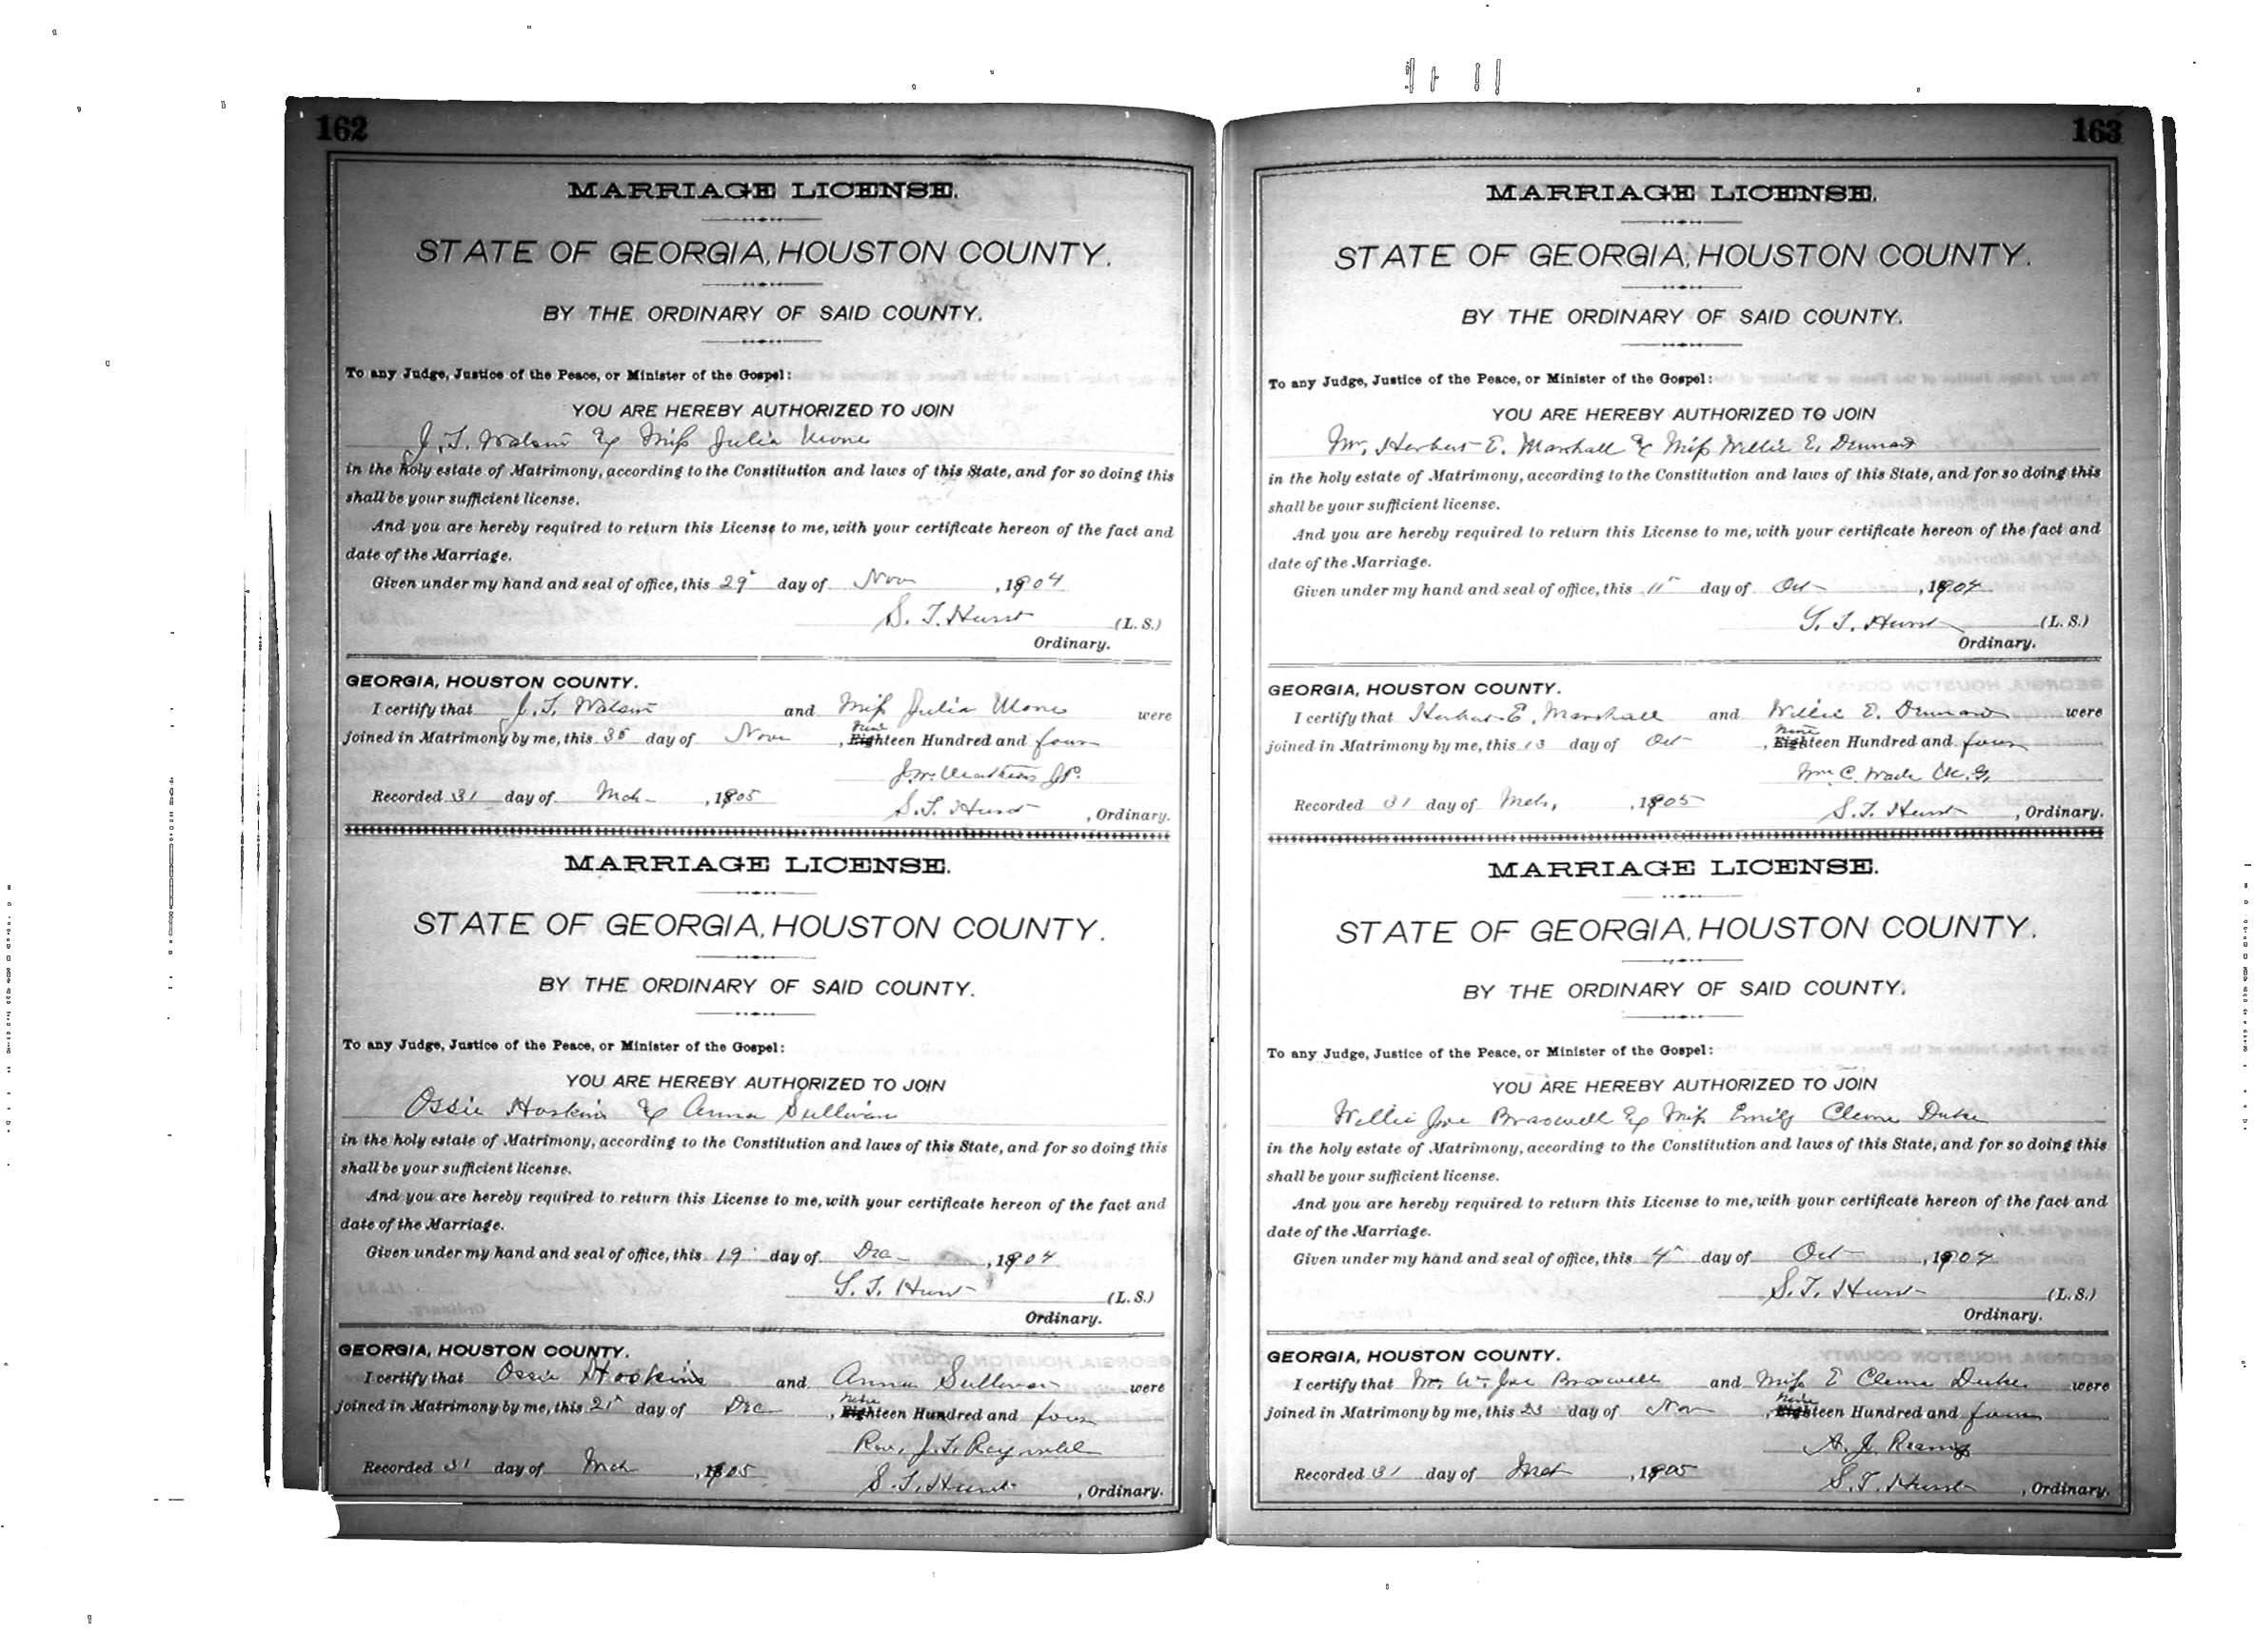 162
MARRIAGE LICENSE.
STATE OF GEORGIA, HOUSTON COUNTY.
BY THE ORDINARY OF SAID COUNTY.
To any Judge, Justice of the Peace, or Minister of the Gospel:
YOU ARE HEREBY AUTHORIZED TO JOIN
J. T. Watson & Miss Julia
in the holy estate of Matrimony, according to the Constitution and laws of this State, and for so doing this
shall be your sufficient license.
And you are hereby required to return this License to me, with your certificate hereon of the fact and
date of the Marriage.
Given under my hand and seal of office, this 29" day of Nov , 1904
S. T. Hurst (L. S.)
Ordinary.
GEORGIA, HOUSTON COUNTY.
I certify that J. T. Watson and Miss Julia were
joined in Matrimony by me, this day of Nov , Nineteen Hundred and four
J.P.
Recorded 31 day of Mch , 1905
S. T. Hurst , Ordinary.
MARRIAGE LICENSE.
STATE OF GEORGIA, HOUSTON COUNTY.
BY THE ORDINARY OF SAID COUNTY.
To any Judge, Justice of the Peace, or Minister of the Gospel:
YOU ARE HEREBY AUTHORIZED TO JOIN
Ossie Hoskins & Anna Sullivan
in the holy estate of Matrimony, according to the Constitution and laws of this State, and for so doing this
shall be your sufficient license.
And you are hereby required to return this License to me, with your certificate hereon of the fact and
date of the Marriage.
Given under my hand and seal of office, this 19" day of Dec , 1904
S. T. Hurst (L. S.)
Ordinary.
GEORGIA, HOUSTON COUNTY.
I certify that Ossie Hoskins and Anna Sullivan were
joined in Matrimony by me, this 21" day of Dec , Nineteen Hundred and four
Rev. J. T.
Recorded 31 day of Mch , 1905
S. T. Hurst , Ordinary.
163
MARRIAGE LICENSE.
STATE OF GEORGIA, HOUSTON COUNTY.
BY THE ORDINARY OF SAID COUNTY.
To any Judge, Justice of the Peace, or Minister of the Gospel:
YOU ARE HEREBY AUTHORIZED TO JOIN
Mr. Herbert E. Marshall & Miss Willie E. Dennard
in the holy estate of Matrimony, according to the Constitution and laws of this State, and for so doing this
shall be your sufficient license.
And you are hereby required to return this License to me, with your certificate hereon of the fact and
date of the Marriage.
Given under my hand and seal of office, this 11" day of Oct , 1904
S. T. Hurst (L. S.)
Ordinary.
GEORGIA, HOUSTON COUNTY.
I certify that Herbert E. Marshall and Willie E. Dennard were
joined in Matrimony by me, this 13 day of Oct , Nineteen Hundred and four
Wm. C. Wade M. G.
Recorded 31 day of Mch, , 1905
S. T. Hurst , Ordinary.
MARRIAGE LICENSE.
STATE OF GEORGIA, HOUSTON COUNTY.
BY THE ORDINARY OF SAID COUNTY.
To any Judge, Justice of the Peace, or Minister of the Gospel:
YOU ARE HEREBY AUTHORIZED TO JOIN
Willie Joe Braswell & Miss Emily Cleone Duke
in the holy estate of Matrimony, according to the Constitution and laws of this State, and for so doing this
shall be your sufficient license.
And you are hereby required to return this License to me, with your certificate hereon of the fact and
date of the Marriage.
Given under my hand and seal of office, this 4" day of Oct , 1904
S. T. Hurst (L. S.)
Ordinary.
GEORGIA, HOUSTON COUNTY.
I certify that Mr. W. Joe Braswell and Miss E Cleone Duke were
joined in Matrimony by me, this 23 day of Nov , Nineteen Hundred and four
A. J.
Recorded 31 day of Mch , 1905
S. T. Hurst , Ordinary.